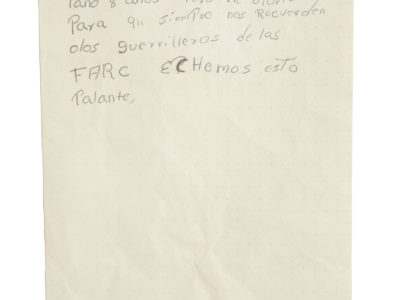 Para qu siempre nos Recuerden
olos guerrilleros de las
FARC ECHemos esto
Palante,